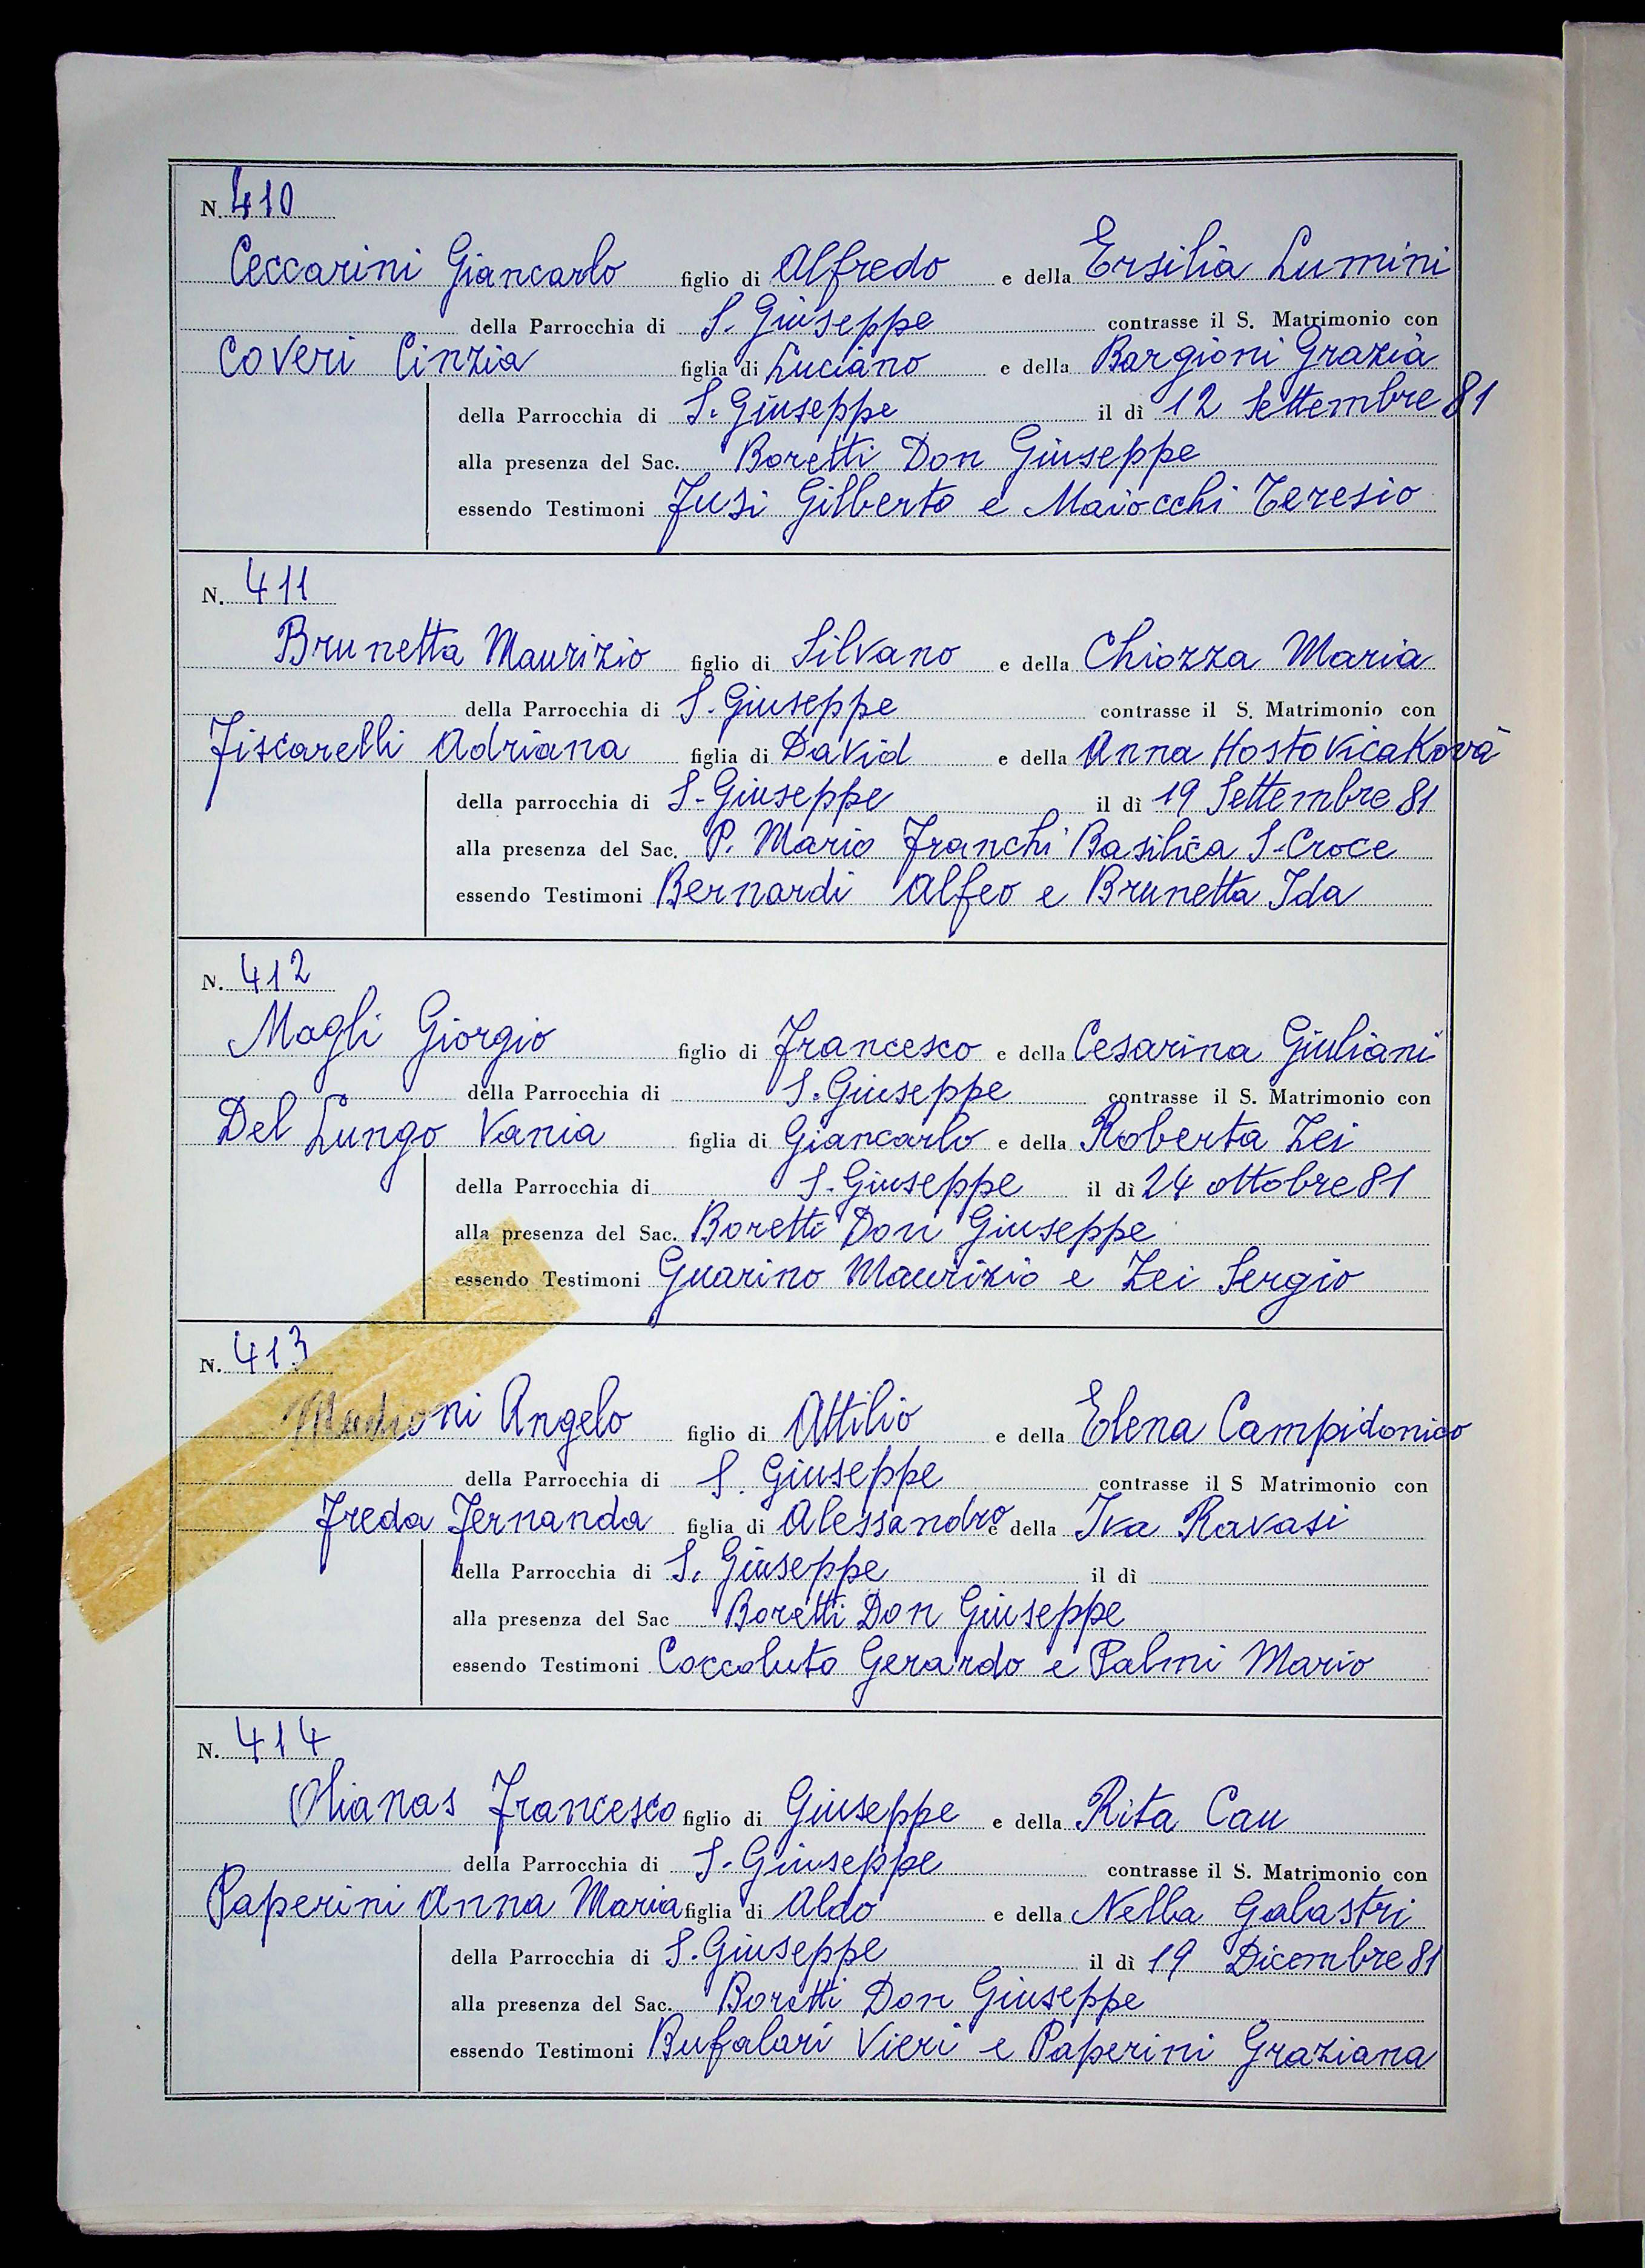 N. 410
Ceccarini Giancarlo figlio di Alfredo e della Ersilia Lumini
della Parrocchia di S. Giuseppe contrasse il S. Matrimonio con
Coveri Cinzia figlia di Luciano e della Bargioni Grazia
della Parrocchia di S. Giuseppe il dì 12 Settembre 81
alla presenza del Sac. Boretti Don Giuseppe
essendo Testimoni Fusi Gilberto e Maiocchi Teresio
N. 411
Brunetta Maurizio figlio di Silvano e della Chiozza Maria
della Parrocchia di S. Giuseppe contrasse il S. Matrimonio con
Fiscarelli Adriana figlia di David e della Anna Hostovicakovà
della parrocchia di S. Giuseppe il dì 19 Settembre 81
alla presenza del Sac. P. Mario Franchi Basilica S. Croce
essendo Testimoni Bernardi Alfeo e Brunetta Ida
N. 412
Magli Giorgio figlio di Francesco e della Cesarina Giuliani
della Parrocchia di S. Giuseppe contrasse il S. Matrimonio con
Del Lungo Vania figlia di Giancarlo e della Roberta Zei
della Parrocchia di S. Giuseppe il dì 24 ottobre 81
alla presenza del Sac. Boretti Don Giuseppe
essendo Testimoni Guarino Maurizio e Zei Sergio
N. 413
Angelo figlio di Attilio e della Elena Campidonico
della Parrocchia di S. Giuseppe contrasse il S Matrimonio con
Freda Fernanda figlia di Alessandro e della Iva Ravasi
della Parrocchia di S. Giuseppe il dì
alla presenza del Sac Boretti Don Giuseppe
essendo Testimoni Coccoluto Gerardo e Palmi Mario
N. 414
Olianas Francesco figlio di Giuseppe e della Rita Cau
della Parrocchia di S. Giuseppe contrasse il S. Matrimonio con
Paperini Anna Maria figlia di Aldo e della Nella Galastri
della Parrocchia di S. Giuseppe il dì 19 Dicembre 81
alla presenza del Sac. Boretti Don Giuseppe
essendo Testimoni Bufalari Vieri e Paperini Graziana